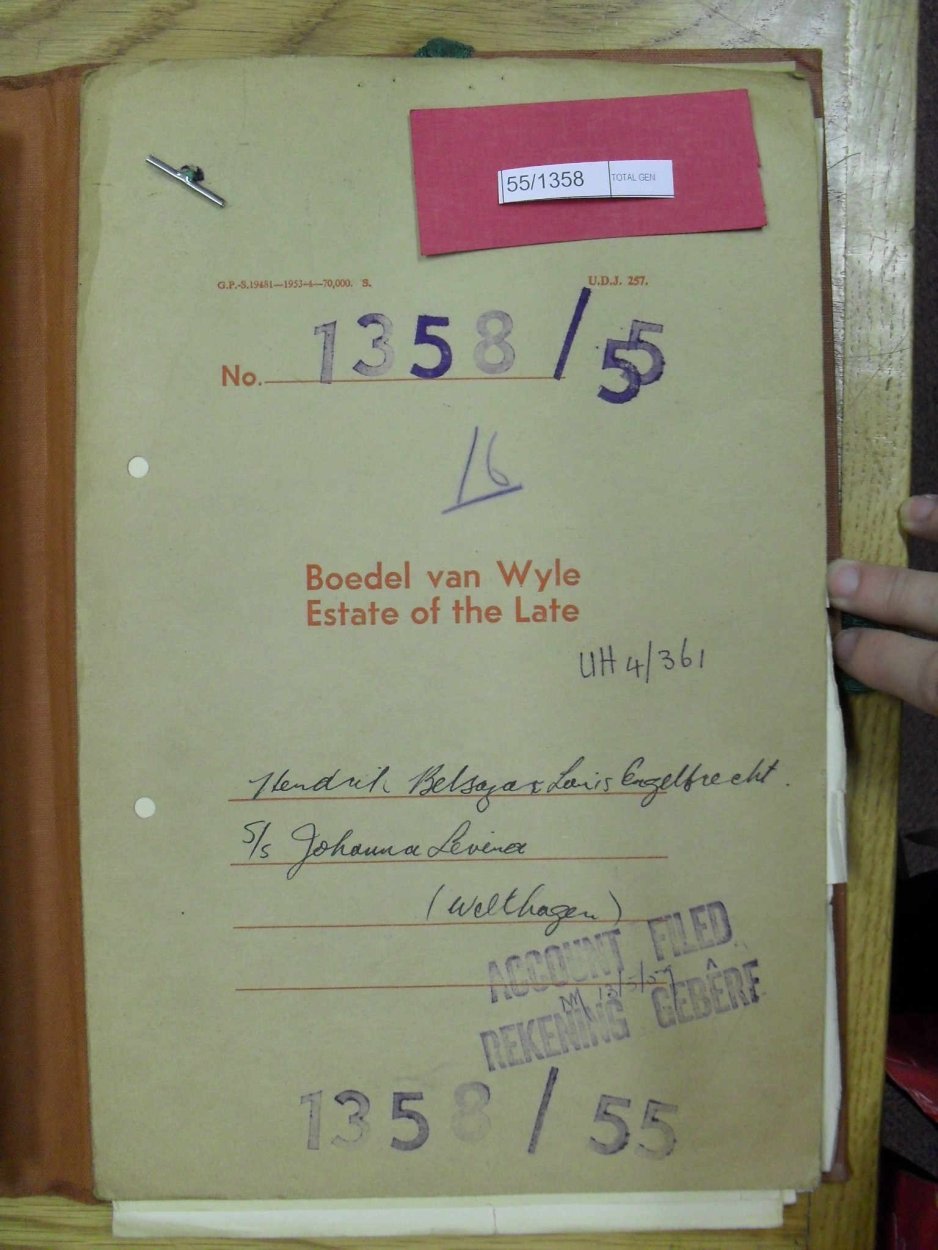 55/1358 TOTAL GEN
G.P.-S.19481—1953-4—70,000. S. U.D.J. 257.
No. 1358/55
16
Boedel van Wyle
Estate of the Late
UH 4/361
Hendrik Belsazar Louis Engelbrecht.
S/s Johanna Levina
(Welthagen)
ACCOUNT FILED
REKENING GEBÊRE
1358/55